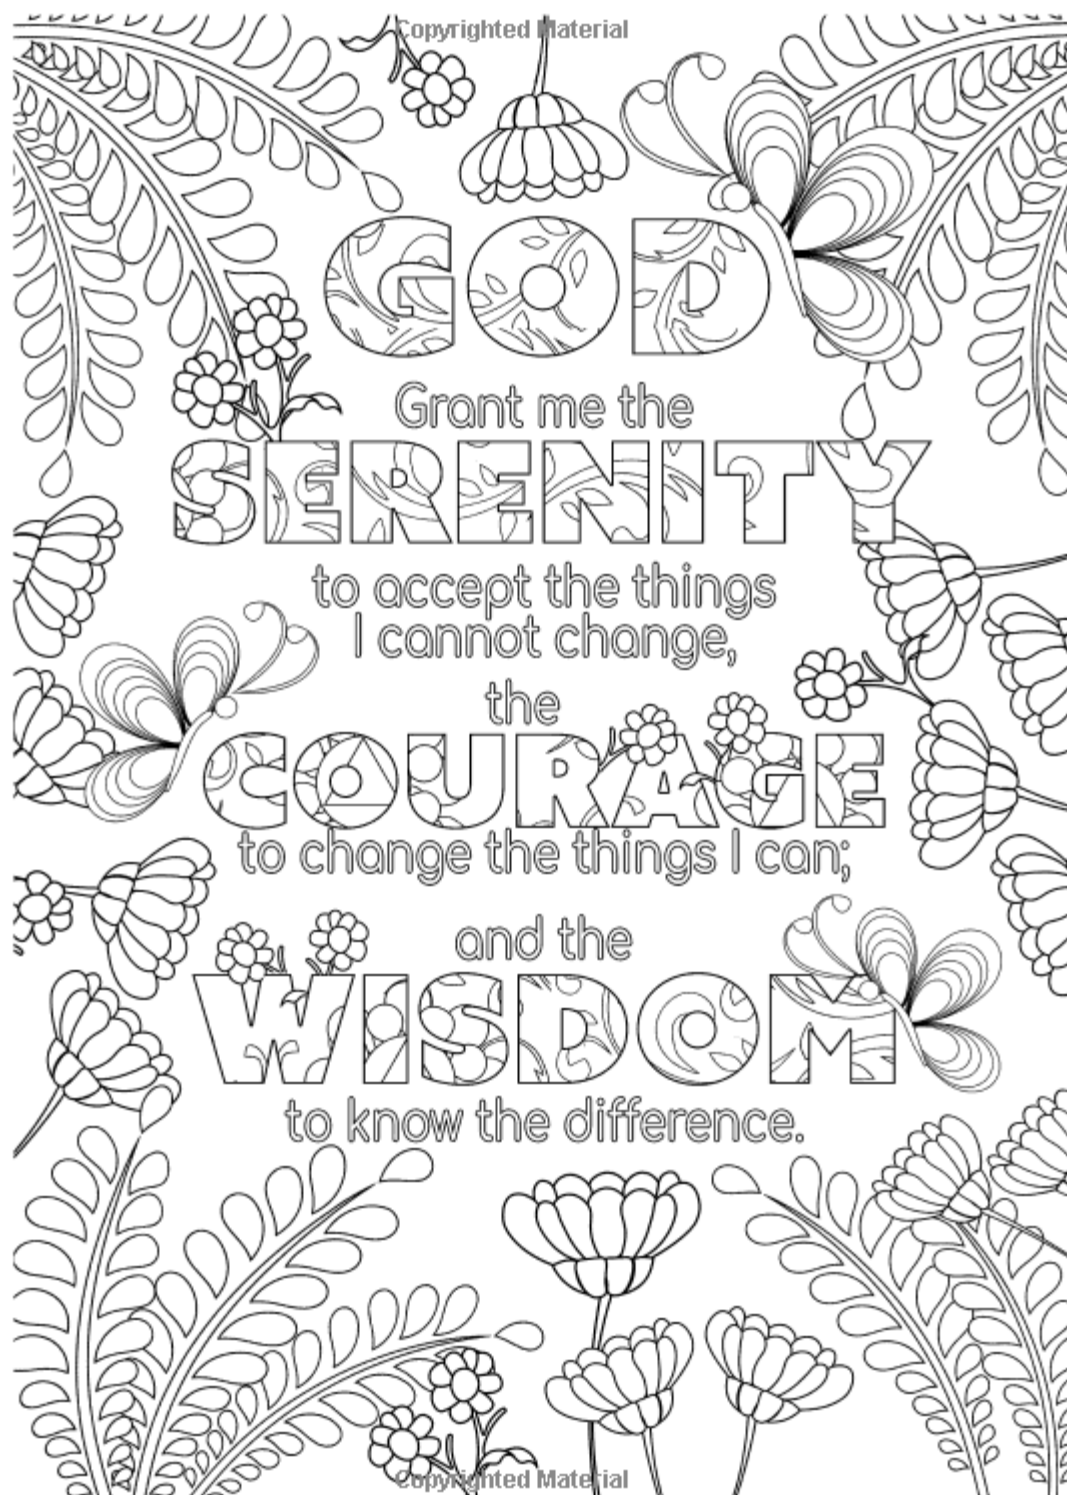 Copyrighted Material
GOD
Grant me the
SERENITY
to accept the things
I cannot change,
the
COURAGE
to change the things I can;
and the
WISDOM
to know the difference.
Copyrighted Material